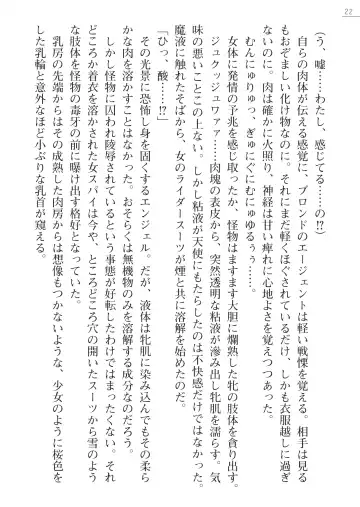 22
（う、嘘……わたし、感じてる……の!?）
　自らの肉体が伝える感覚に、ブロンドのエージェントは軽い戦慄を覚えた。相手は見る
もおぞましい化け物なのに。それにまだ軽くほぐされているだけ、しかも衣服越しに過ぎ
ないのに。肉は確かに火照り、神経は甘い痺れに心地よさを覚えつつあった。
　むんにゅりゅっ、ぎゅにぐにむにゅるぅぅ……。
　女体に発情の予兆を感じ取ったか、怪物はますます大胆に爛熟した牝の肢体を貪り出す。
　ジュクッジュワァァ……肉塊の表皮から、突然透明な粘液が滲み出し牝肌を濡らす。気
味の悪いことこの上ない。しかし粘液が天使にもたらしたのは不快感だけではなかった。
魔液に触れたそばから、女のライダースーツが煙と共に溶解を始めたのだ。
「ひっ、酸……!?」
　その光景に恐怖し身を固くするエンジェル。だが、液体は牝肌に染み込んでもその柔ら
かな肉を溶かすことはなかった。おそらくは無機物のみを溶解する成分なのだろう。
　しかし怪物に囚われ陵辱されているという事態が好転したわけではまったくない。それ
どころか着衣を溶かされた女スパイは今や、ところどころ穴の開いたスーツから雪のよう
な肢体を怪物の毒牙の前に曝け出す格好となっていた。
　乳房の先端からはその成熟した肉房からは想像もつかないような、少女のように桜色を
した乳輪と意外なほど小ぶりな乳首が窺える。